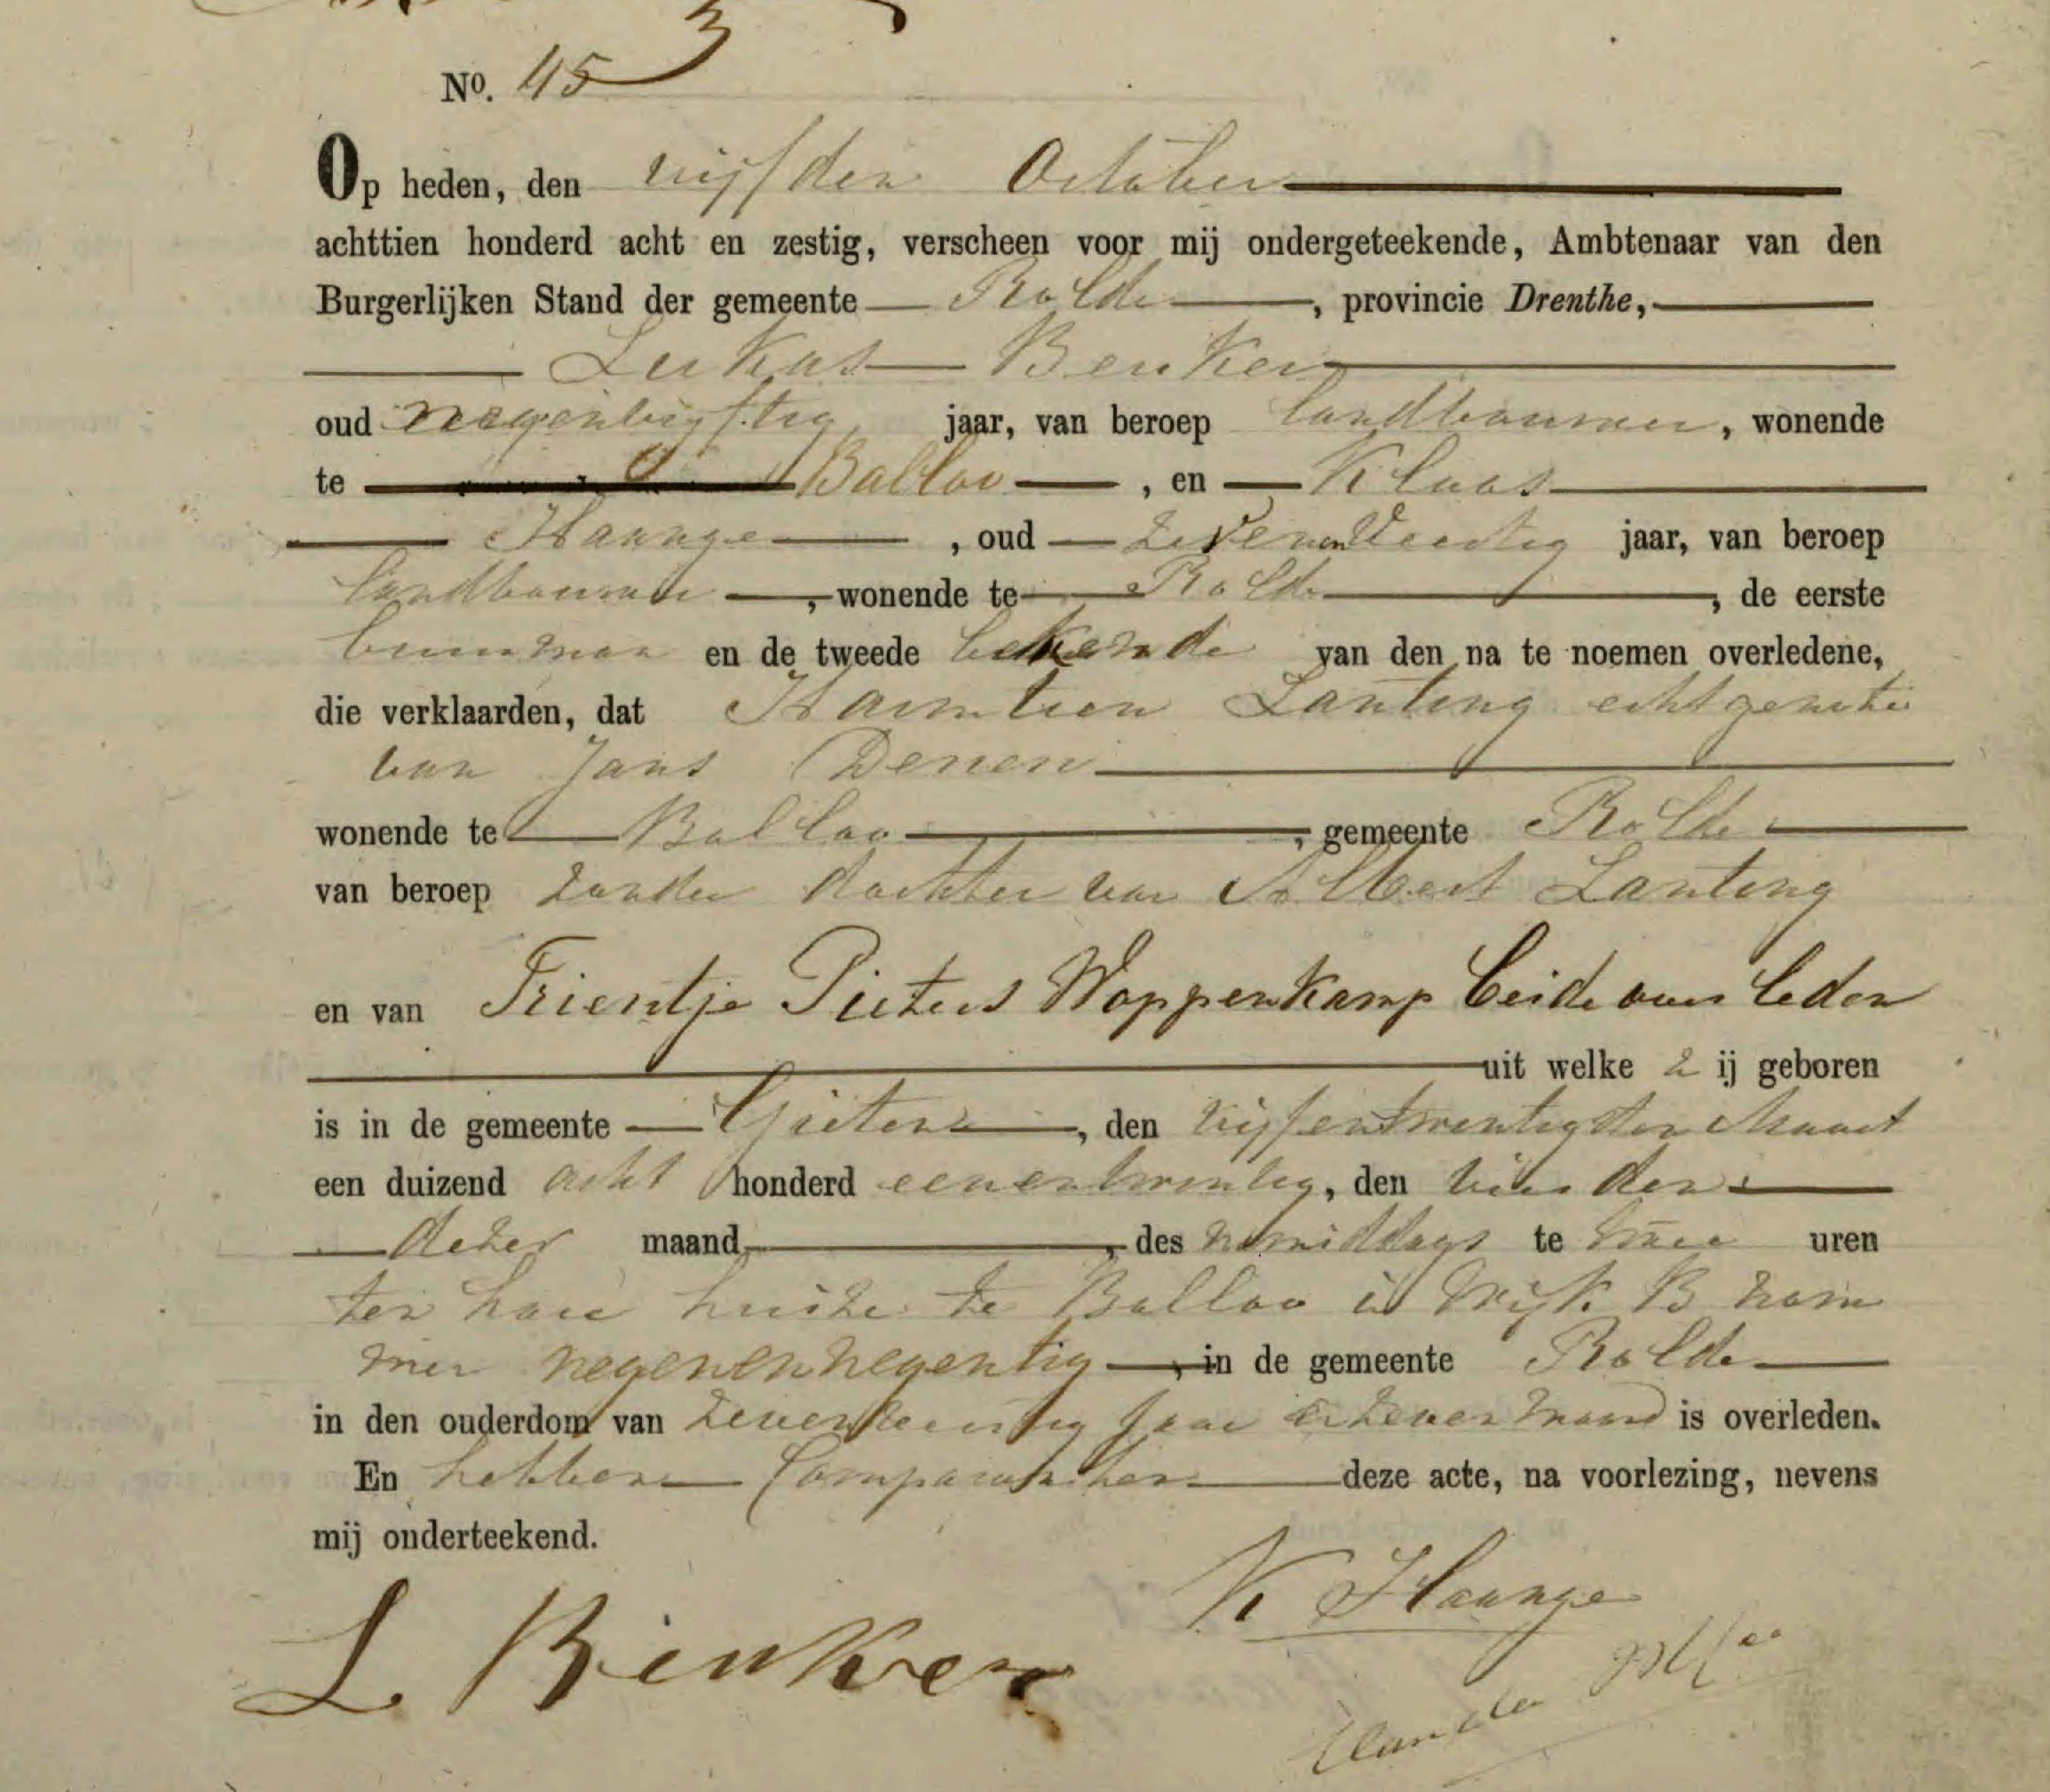 No. 45
Op heden, den vijfden October
achttien honderd acht en zestig, verscheen voor mij ondergeteekende, Ambtenaar van den
Burgerlijken Stand der gemeente Rolde, provincie Drenthe,
Lukas Beuker
oud negenvijftig jaar, van beroep landbouwer, wonende
te Balloo, en Klaas
Haange, oud zevenenveertig jaar, van beroep
landbouwer, wonende te Rolde, de eerste
buurman en de tweede bekende van den na te noemen overledene,
die verklaarden, dat Harmtien Lanting echtgenote
van Jans Denen
wonende te Balloo, gemeente Rolde
van beroep zonder dochter van Albert Lanting
en van Trientje Pieters Woppenkamp beide overleden
uit welke zij geboren
is in de gemeente Gieten, den vijfentwintigsten Maart
een duizend acht honderd eenentwintig, den vierden
dezer maand, des namiddags te twee uren
ten haren huize te Balloo in Wijk B nom
mer negenennegentig, in de gemeente Rolde
in den ouderdom van zevenveertig jaar en zeven maand is overleden.
En hebben Comparanten deze acte, na voorlezing, nevens
mij onderteekend.
K Haange
L Beuker